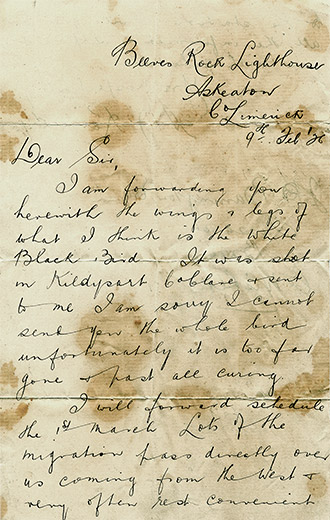 Beeves Rock Lighthouse
Askeaton
Co Limerick
9th Feb
Dear Sir,
I am forwarding you
herewith the wings & legs of
what I think is the White
Black Bird. It was shot
in Kildysart Co Clare & sent
to me I am sorry I cannot
send you the whole bird
unfortunately it is too far
gone & past all curing.
I will forward schedule
the 1st March Lots of the
migration pass directly over
us coming from the West &
very often rest convenient